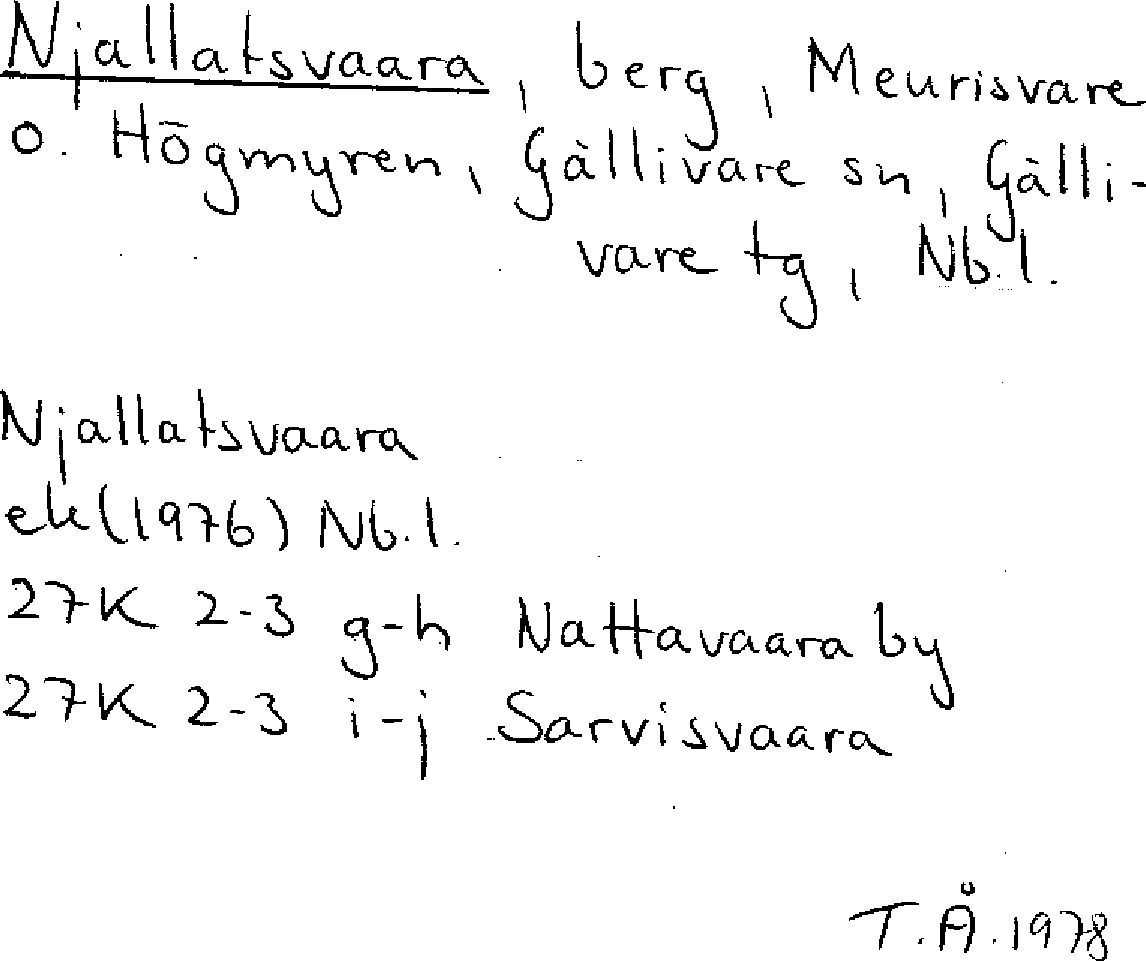 Njallatsvaara, berg, Meurisvare
o. Högmyren, Gällivare sn, Gälli-
vare tg, Nb.l.
Njallatsvaara
ek(1976) Nb.l.
27K 2-3 g-h Nattavaara by
27K 2-3 i-j Sarvisvaara
T.Å.1978